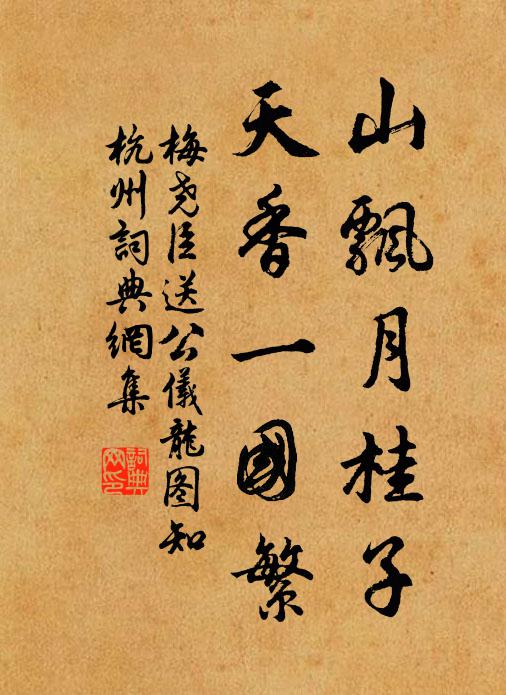 山飄月桂子
天香一國繁
梅堯臣送公儀龍图知
杭州詞典網集
詞典
网印